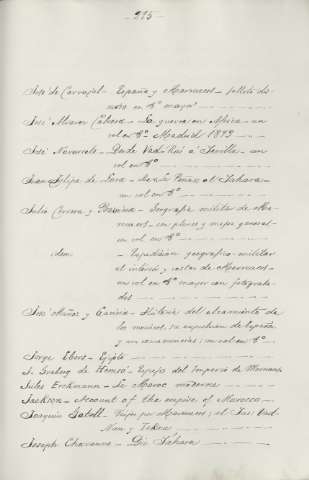 - 215 -
José de Carvajal - España y Marruecos - folleto de
en 8º mayor
José Alvarez Cabrera - La guerra en Africa - un
vol en 8º Madrid 1893
José Navarrete - Desde Vad-Ras á Sevilla - un
vol en 8º
Juan Felipe de Lara - De la Peña al Sahara -
un vol en 8º
Julio Cervera y Baviera - Geografía militar de Ma-
rruecos - con planos y mapa general -
un vol en 8º
idem - Expedición geografico-militar
al interior y costas de Marruecos -
un vol en 8º mayor con fotograba-
dos
José Muñoz y Gaviria - Historia del alzamiento de
los moriscos, su expulsion de España
y sus consecuencias; un vol en 8º
Jorge Ebers - Egipto
J. Graberg de Hemsö - Specchio del Imperio di Marocco
Jules Erckmann - Le Maroc moderne
Jackson - Account of the empire of Morocco
Joaquin Gatell - Viajes por Marruecos; el Sus; Uad-
Nun y Tekna
Joseph Chavanne - Die Sahara